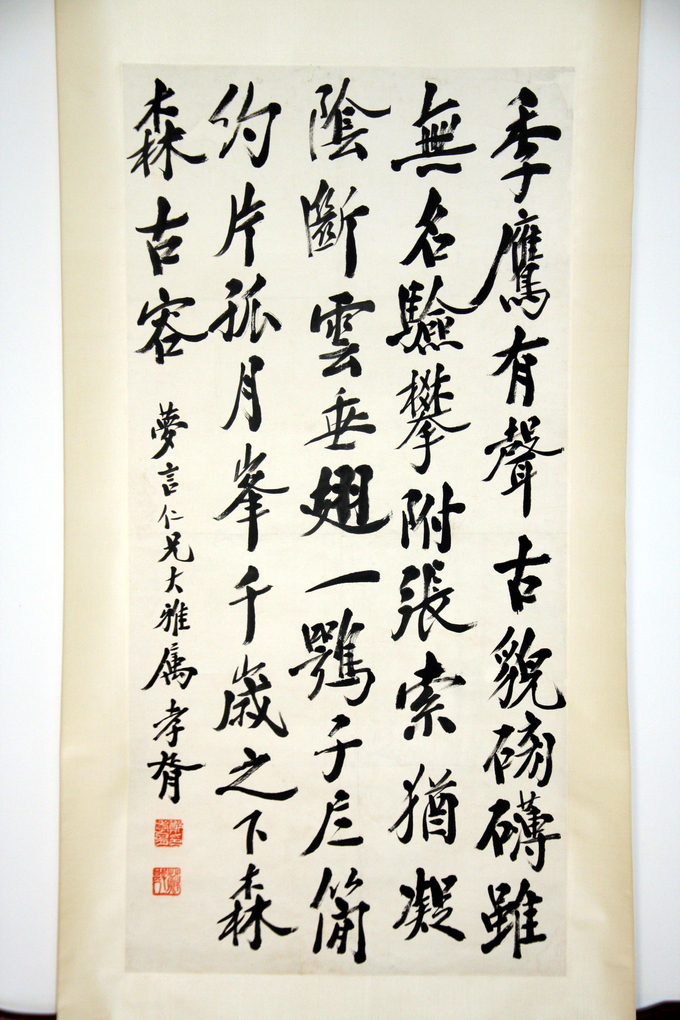 季鷹有聲古貌磅礴雖
無名驗攀附張索猶凝
陰斷雲垂翅一鶚于巵簡
約片孤月峯千歲之下森
森古容
夢言仁兄大雅屬孝胥